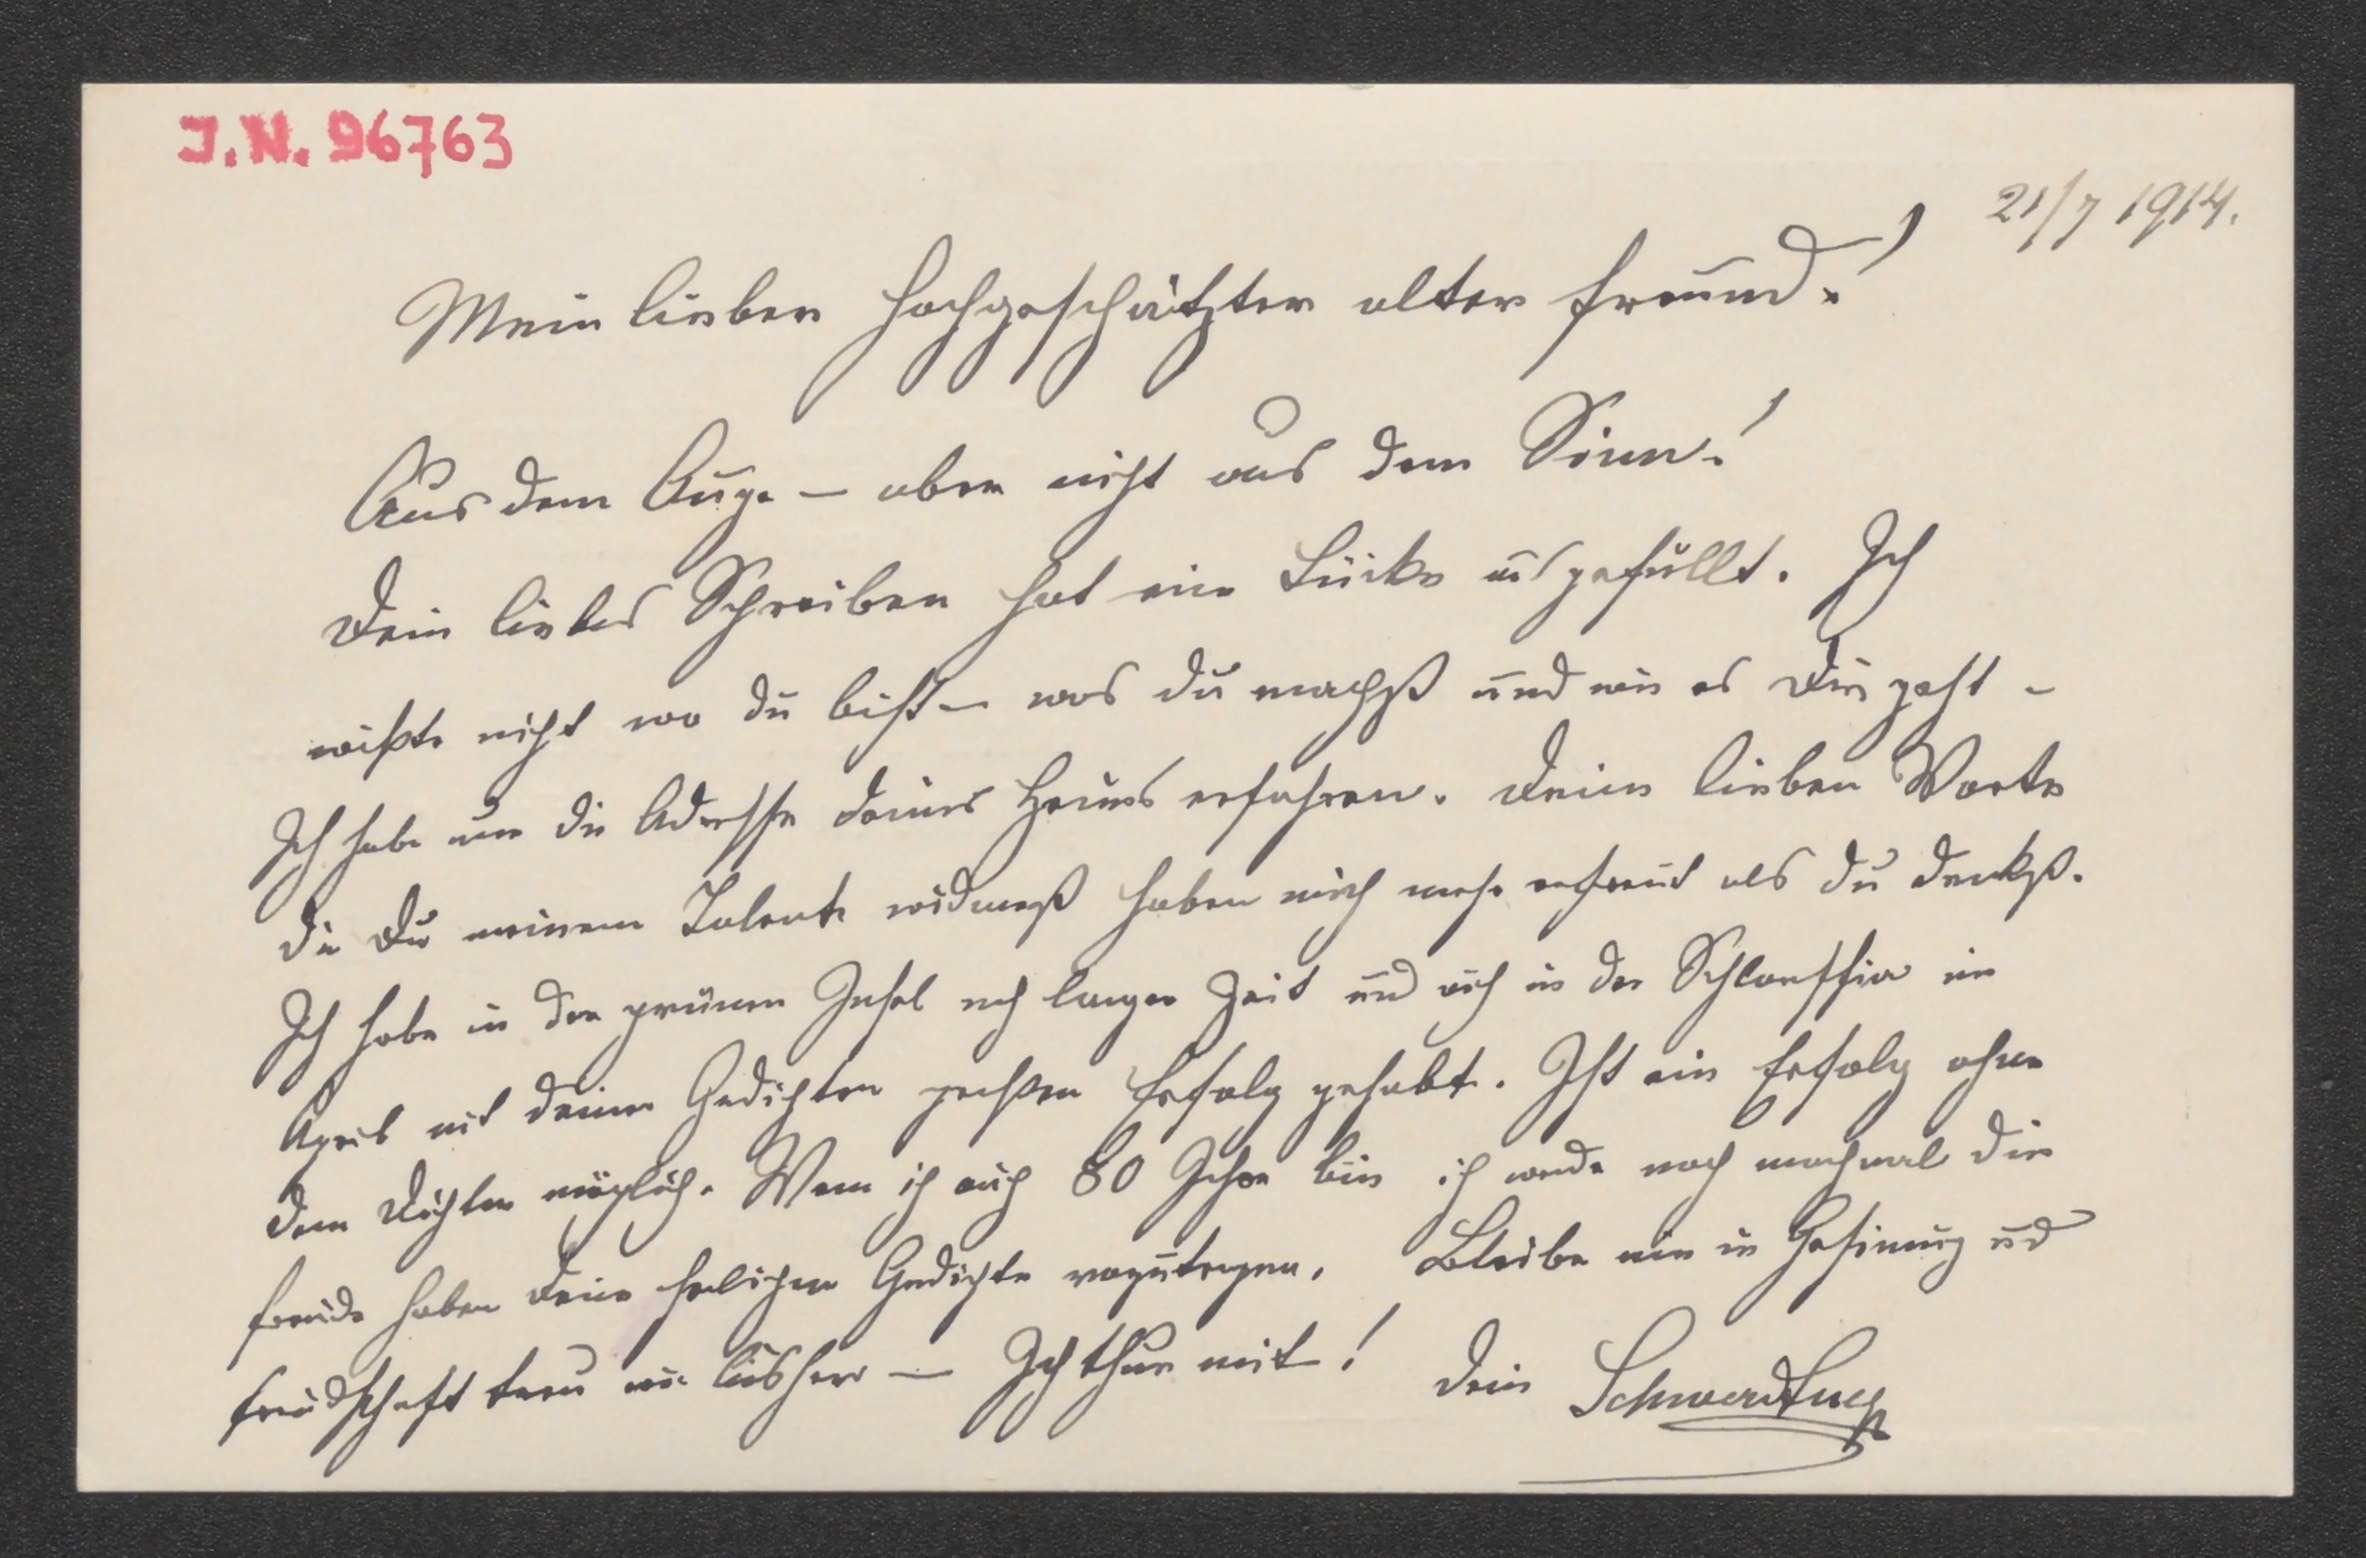 J.N. 96763
21/7 1914.
Mein lieber hochgeschätzter alter Freund!
Aus dem Auge – aber nicht aus dem Sinn!
Dein liebes Schreiben hat eine Lücke ausgefüllt. Ich
wißte nicht wo du bist – was du machst und wie es Dir geht –
Ich habe nur die Adresse deines Heims erfahren. Deine lieben Worte
die Du meinem Talente widmest haben mich mehr erfreut als du denkst.
Ich habe in der grünen Insel nach langer Zeit und auch in der Schlaraffia im
April mit deinen Gedichten großen Erfolg gehabt. Ist ein Erfolg ohne
dem Dichter möglich. Wenn ich auch 80 Jahre bin ich werde noch manchmal die
Freude haben Deine herlichen Gedichte vorzutragen. Bleibe mir in Gesinnung und
Freundschaft treu wie bisher – Ich thue mit! Dein